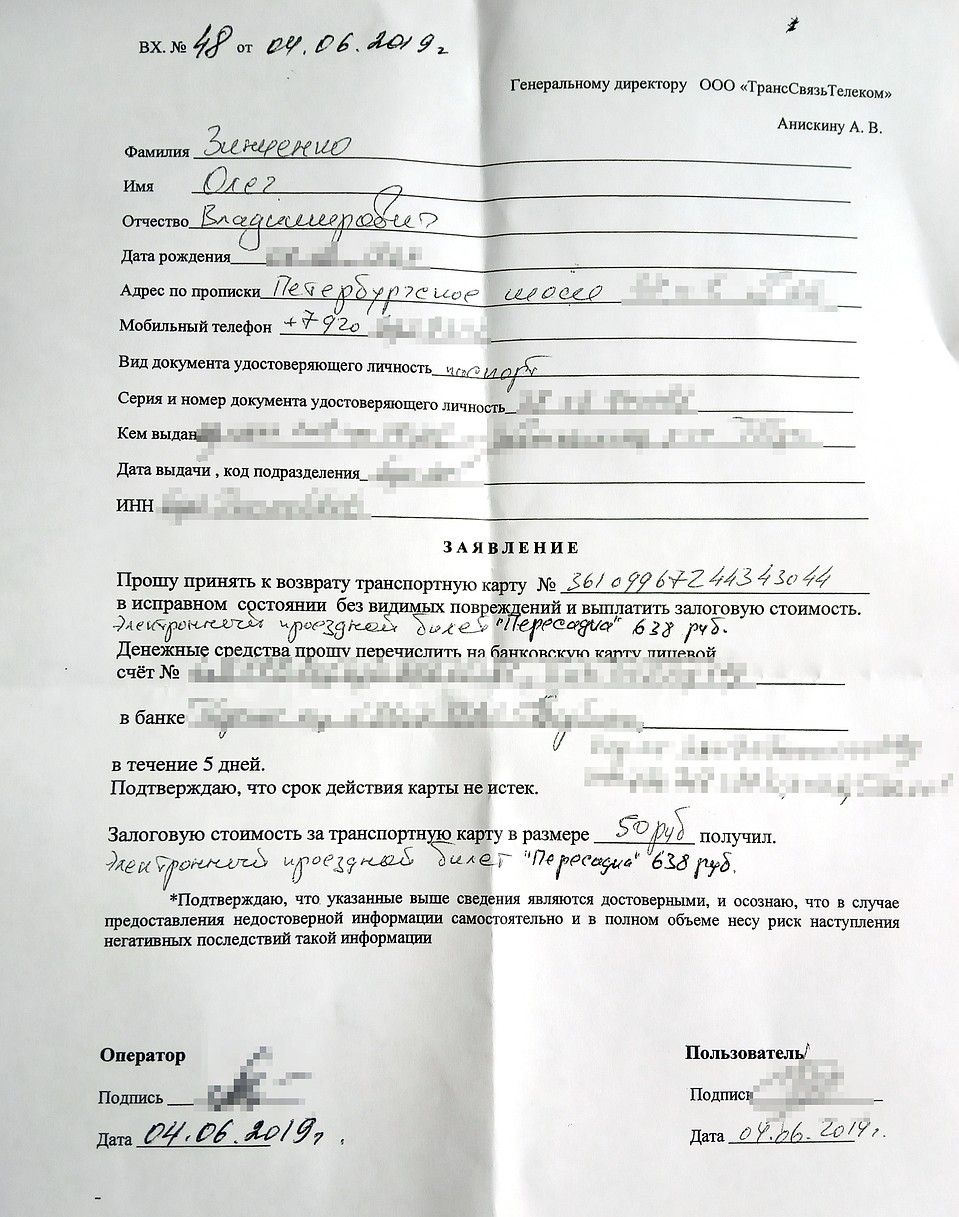 ВХ. № 48 от 04.06.2019г
Генеральному директору ООО «ТрансСвязьТелеком»
Анискину А. В.
Фамилия Зинченко
Имя Олег
Отчество Владимирович
Дата рождения
Адрес по прописки Петербургское шоссе
Мобильный телефон +7 920
Вид документа удостоверяющего личность паспорт
Серия и номер документа удостоверяющего личность
Кем выдан
Дата выдачи , код подразделения
ИНН
ЗАЯВЛЕНИЕ
Прошу принять к возврату транспортную карту № 36109967244343044
в исправном состоянии без видимых повреждений и выплатить залоговую стоимость.
Электронный проездной билет "Пересадка" 638 руб.
Денежные средства прошу перечислить на банковскую карту лицевой
счёт №
в банке
в течение 5 дней.
Подтверждаю, что срок действия карты не истек.
Залоговую стоимость за транспортную карту в размере 50 руб получил.
Электронный проездной билет "Пересадка" 638 руб.
*Подтверждаю, что указанные выше сведения являются достоверными, и осознаю, что в случае
предоставления недостоверной информации самостоятельно и в полном объеме несу риск наступления
негативных последствий такой информации
Оператор
Пользователь
Подпись
Подпись
Дата 04.06.2019г.
Дата 04.06.2019г.